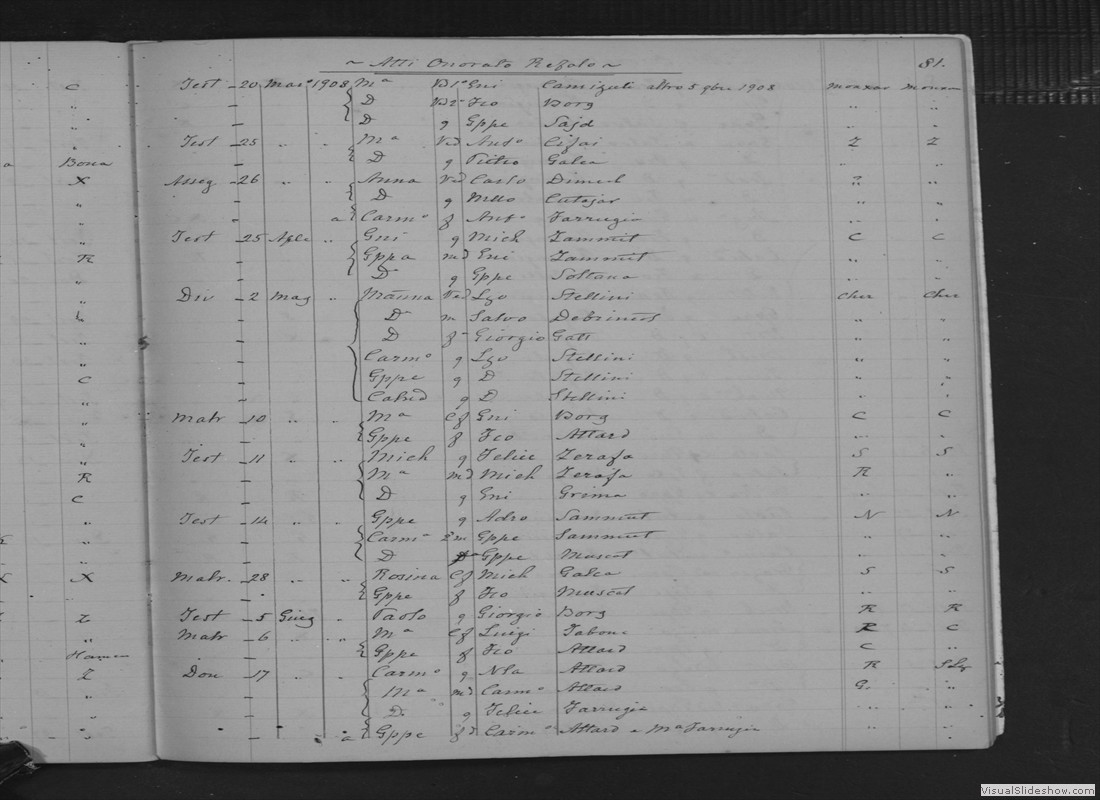 ~ Atti Onorato Refalo ~
81.
C Test - 20 Mar° 1908 Mª Vd 1° Gni Camizuli altro 5 9bre 1908 Monxar Monxar
" - D Vd 2° Fco Borg " "
" - D q Gppe Sajd " "
" Test - 25 " " Mª Vd Ant° Cefai Z Z
a Bona - D q Pietro Galea " "
X Asseg - 26 " " Anna Vd Carlo Dimech ? "
" - D q Mllo Cutajar " "
" - a Carm° f Ant° Farrugia " "
" Test - 25 Aple " Gni q Mich Zammit C C
R - Gppa md Gni Zammit " "
" - D q Gppe Soltana " "
" Div - 2 Mag " Marina Vd Lzo Stellini Cher Cher
- D m Salvo Debrincat " "
" - D f Giorgio Gatt " "
" - Carm° q Lzo Stellini " "
C - Gppe q D Stellini " "
" - q D Stellini " "
" Matr - 10 " " Mª ef Gni Borg C C
" - Gppe f Fco Attard " "
" Test - 11 " " Mich q Felice Zerafa S S
R - Mª md Mich Zerafa R "
C - D q Gni Grima " "
" Test - 14 " " Gppe q Adro Sammut N N
" - Carm° 2 m Gppe Sammut " "
" - D Gppe Muscat " "
X Matr. - 28 " " Rosina ef Mich Galea S S
" - Gppe f Fco Muscat " "
Z Test - 5 Giug " Paolo q Giorgio Borg R R
" Matr - 6 " " Mª ef Luigi Tabone R C
Hamen - Gppe f Fco Attard C "
Z Don - 17 " " Carm° q Nla Attard R
" - Mª md Carm° Attard G. "
" - D q Felice Farrugia " "
" - a Gppe f d Carm° Attard e Mª Farrugia " "
VisualSlideshow.com